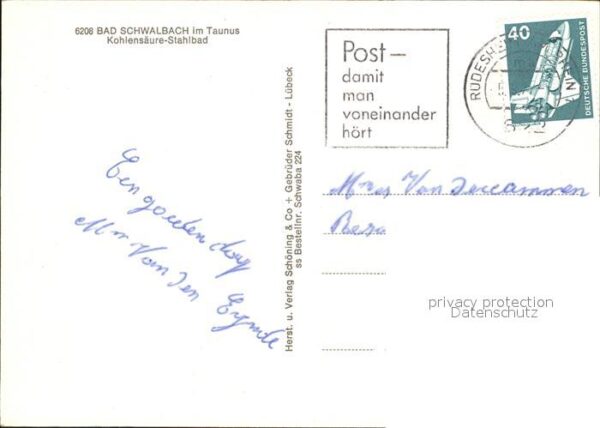 6208 BAD SCHWALBACH im Taunus
Kohlensäure-Stahlbad
Een goeden dag
Mr Van Den Eynde
Herst. u. Verlag Schöning & Co + Gebrüder Schmidt - Lübeck
ss Bestellnr. Schwaba 224
Post —
damit
man
voneinander
hört
40
DEUTSCHE BUNDESPOST
RÜDESH
Van
privacy protection
Datenschutz